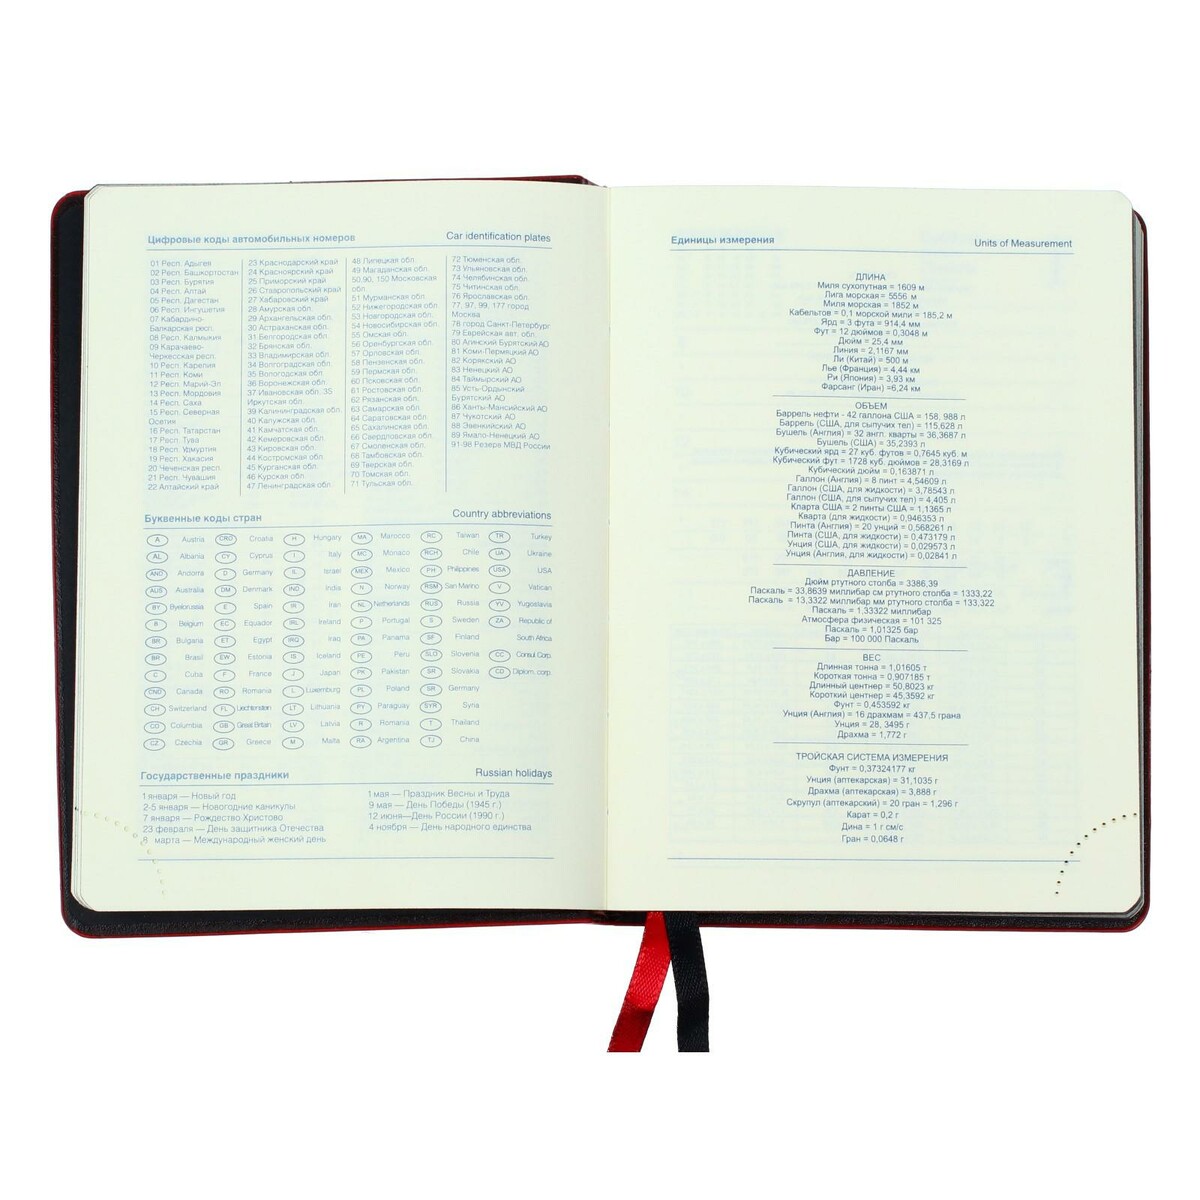 Цифровые коды автомобильных номеров
Car identification plates
01 Респ. Адыгея
02 Респ. Башкортостан
03 Респ. Бурятия
04 Респ. Алтай
05 Респ. Дагестан
06 Респ. Ингушетия
07 Кабардино-
Балкарская респ.
08 Респ. Калмыкия
09 Карачаево-
Черкесская респ.
10 Респ. Карелия
11 Респ. Коми
12 Респ. Марий-Эл
13 Респ. Мордовия
14 Респ. Саха
15 Респ. Северная
Осетия
16 Респ. Татарстан
17 Респ. Тува
18 Респ. Удмуртия
19 Респ. Хакасия
20 Чеченская респ.
21 Респ. Чувашия
22 Алтайский край
23 Краснодарский край
24 Красноярский край
25 Приморский край
26 Ставропольский край
27 Хабаровский край
28 Амурская обл.
29 Архангельская обл.
30 Астраханская обл.
31 Белгородская обл.
32 Брянская обл.
33 Владимирская обл.
34 Волгоградская обл.
35 Вологодская обл.
36 Воронежская обл.
37 Ивановская обл. 3S
Иркутская обл.
39 Калининградская обл.
40 Калужская обл.
41 Камчатская обл.
42 Кемеровская обл.
43 Кировская обл.
44 Костромская обл.
45 Курганская обл.
46 Курская обл.
47 Ленинградская обл.
48 Липецкая обл.
49 Магаданская обл.
50,90, 150 Московская
обл.
51 Мурманская обл.
52 Нижегородская обл.
53 Новгородская обл.
54 Новосибирская обл.
55 Омская обл.
56 Оренбургская обл.
57 Орловская обл.
58 Пензенская обл.
59 Пермская обл.
60 Псковская обл.
61 Ростовская обл.
62 Рязанская обл.
63 Самарская обл.
64 Саратовская обл.
65 Сахалинская обл.
66 Свердловская обл.
67 Смоленская обл.
68 Тамбовская обл.
69 Тверская обл.
70 Томская обл.
71 Тульская обл.
72 Тюменская обл.
73 Ульяновская обл.
74 Челябинская обл.
75 Читинская обл.
76 Ярославская обл.
77, 97, 99, 177 город
Москва
78 город Санкт-Петербург
79 Еврейская авт. обл.
80 Агинский Бурятский АО
81 Коми-Пермяцкий АО
82 Корякский АО
83 Ненецкий АО
84 Таймырский АО
85 Усть-Ордынский
Бурятский АО
86 Ханты-Мансийский АО
87 Чукотский АО
88 Эвенкийский АО
89 Ямало-Ненецкий АО
91-98 Резерв МВД России
Буквенные коды стран
Country abbreviations
A Austria CRO Croatia H Hungary MA Marocco RC Taiwan TR Turkey
AL Albania CY Cyprus I Italy MC Monaco RCH Chile UA Ukraine
AND Andorra D Germany IL Israel MEX Mexico PH Philippines USA USA
AUS Australia DM Denmark IND India N Norway RSM San Marino V Vatican
BY Byelorussia E Spain IR Iran NL Netherlands RUS Russia YV Yugoslavia
B Belgium EC Equador IRL Ireland P Portugal S Sweden ZA Republic of
BR Bulgaria ET Egypt IRQ Iraq PA Panama SF Finland South Africa
BR Brasil EW Estonia IS Iceland PE Peru SLO Slovenia CC Consul Corp.
C Cuba F France J Japan PK Pakistan SR Slovakia CD Diplom. corp.
CND Canada RO Romania L Luxemburg PL Poland SR Germany
CH Switzerland FL Liechtenstein LT Lithuania PY Paraguay SYR Syria
CO Columbia GB Great Britain LV Latvia R Romania T Thailand
CZ Czechia GR Greece M Malta RA Argentina TJ China
Государственные праздники
Russian holidays
1 января — Новый год
2-5 января — Новогодние каникулы
7 января — Рождество Христово
23 февраля — День защитника Отечества
8 марта — Международный женский день
1 мая — Праздник Весны и Труда
9 мая — День Победы (1945 г.)
12 июня—День России (1990 г.)
4 ноября — День народного единства
Единицы измерения
Units of Measurement
ДЛИНА
Миля сухопутная = 1609 м
Лига морская = 5556 м
Миля морская = 1852 м
Кабельтов = 0,1 морской мили = 185,2 м
Ярд = 3 фута = 914,4 мм
Фут = 12 дюймов = 0,3048 м
Дюйм = 25,4 мм
Линия = 2,1167 мм
Ли (Китай) = 500 м
Лье (Франция) = 4,44 км
Ри (Япония) = 3,93 км
Фарсанг (Иран) =6,24 км
ОБЪЕМ
Баррель нефти - 42 галлона США = 158, 988 л
Баррель (США, для сыпучих тел) = 115,628 л
Бушель (Англия) = 32 англ. кварты = 36,3687 л
Бушель (США) = 35,2393 л
Кубический ярд = 27 куб. футов = 0,7645 куб. м
Кубический фут = 1728 куб. дюймов = 28,3169 л
Кубический дюйм = 0,163871 л
Галлон (Англия) = 8 пинт = 4,54609 л
Галлон (США, для жидкости) = 3,78543 л
Галлон (США, для сыпучих тел) = 4,405 л
Кпарта США = 2 пинты США = 1,1365 л
Кварта (для жидкости) = 0,946353 л
Пинта (Англия) = 20 унций = 0,568261 л
Пинта (США, для жидкости) = 0,473179 л
Унция (США, для жидкости) = 0,029573 л
Унция (Англия, для жидкости) = 0,02841 л
ДАВЛЕНИЕ
Дюйм ртутного столба = 3386,39
Паскаль = 33,8639 миллибар см ртутного столба = 1333,22
Паскаль = 13,3322 миллибар мм ртутного столба = 133,322
Паскаль = 1,33322 миллибар
Атмосфера физическая = 101 325
Паскаль = 1,01325 бар
Бар = 100 000 Паскаль
ВЕС
Длинная тонна = 1,01605 т
Короткая тонна = 0,907185 т
Длинный центнер = 50,8023 кг
Короткий центнер = 45,3592 кг
Фунт = 0,453592 кг
Унция (Англия) = 16 драхмам = 437,5 грана
Унция = 28, 3495 г
Драхма = 1,772 г
ТРОЙСКАЯ СИСТЕМА ИЗМЕРЕНИЯ
Фунт = 0,37324177 кг
Унция (аптекарская) = 31,1035 г
Драхма (аптекарская) = 3,888 г
Скрупул (аптекарский) = 20 гран = 1,296 г
Карат = 0,2 г
Дина = 1 г см/с
Гран = 0,0648 г